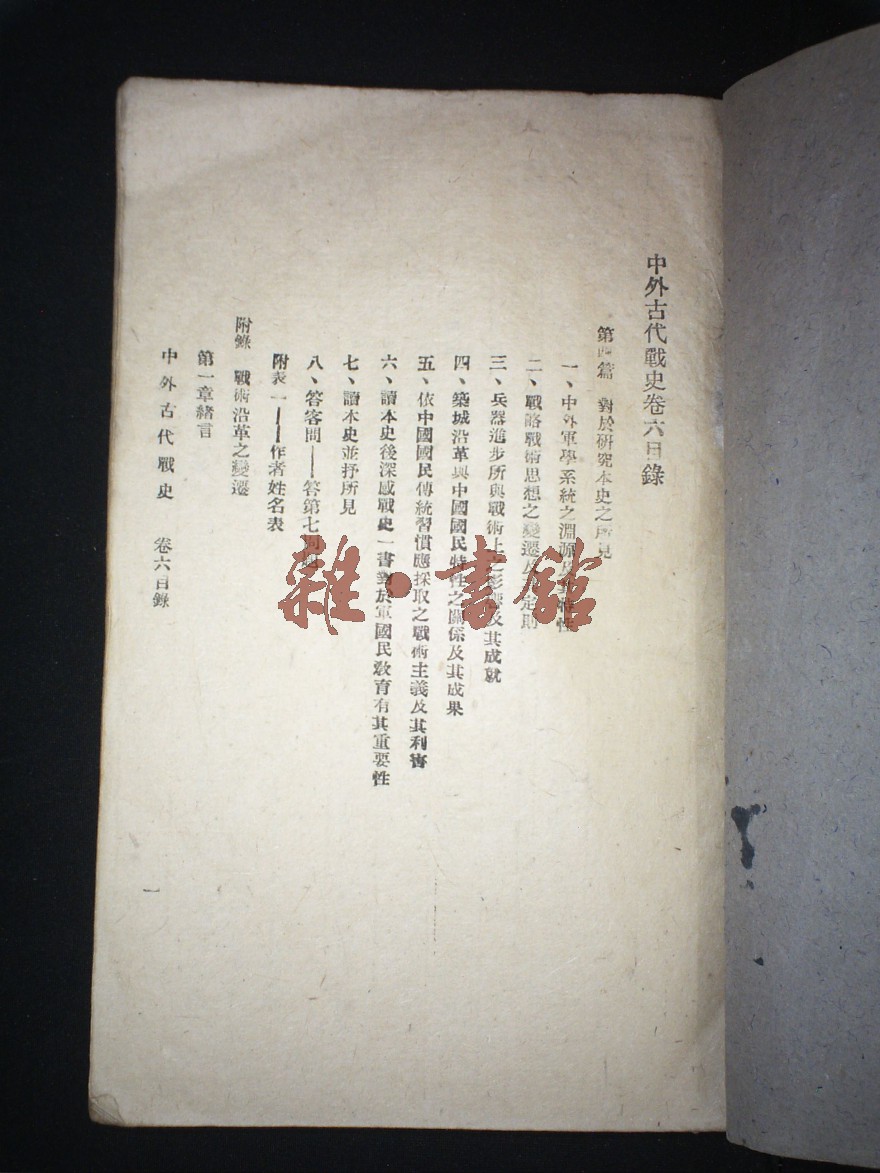 中外古代戰史卷六目錄
第四篇 對於研究本史之所見
一、中外軍學系統之淵源及其特性
二、戰略戰術思想之變遷及其定則
三、兵器進步所與戰術上之影響及其成就
四、築城沿革與中國國民特性之關係及其成果
五、依中國國民傳統習慣應採取之戰術主義及其利害
六、讀本史後深感戰史一書對於軍國民教育有其重要性
七、讀本史並抒所見
八、答客問——答第七問題
附表一——作者姓名表
附錄 戰術沿革之變遷
第一章緒言
中外古代戰史 卷六目錄
一
雜·書館